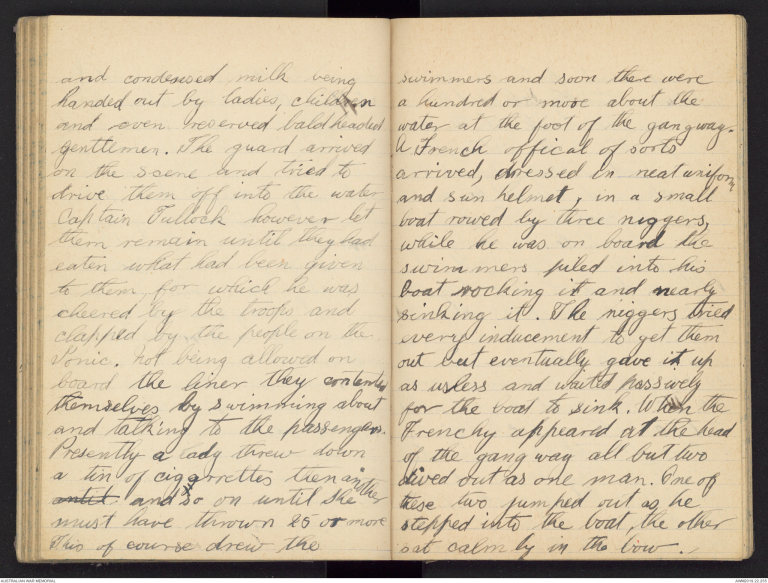 and condensed milk being
handed out by ladies, children
and even reserved baldheaded
gentlemen. The guard arrived
on the scene and tried to
drive them off into the water
Captain Tullock however let
them remain until they had
eaten what had been given
to them, for which he was
cheered by the troops and
clapped by the people on the
Ionic. Not being allowed on
board the liner they contented
themselves by swimming about
and talking to the passengers.
Presently a lady threw down
a tin of cigarrettes then another
until and so on until she
must have thrown 25 or more
This of course drew the
swimmers and soon there were
a hundred or more about the
water at the foot of the gangway.
A French offical of sorts
arrived, dressed in neat uniform
and sun helmet, in a small
boat rowed by three niggers,
while he was on board the
swimmers piled into his
boat rocking it and nearly
sinking it. The niggers tried
every inducement to get them
out but eventually gave it up
as usless and waited passively
for the boat to sink. When the
Frenchy appeared at the head
of the gangway all but two
dived out as one man. One of
these two jumped out as he
stepped into the boat, the other
sat calmly in the bow.
AUSTRALIAN WAR MEMORIAL